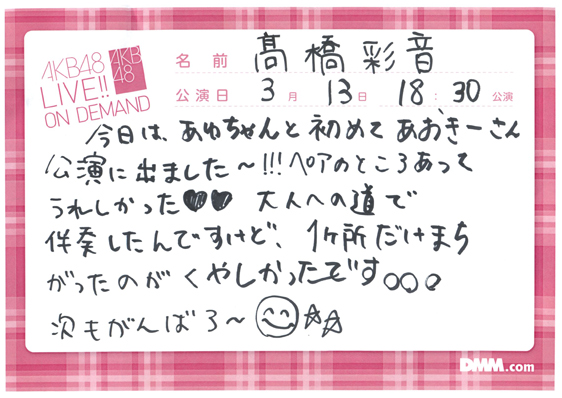 AKB48
LIVE!!
ON DEMAND
AKB
48
名前 髙橋彩音
公演日 3月 13日 18:30 公演
今日は、あゆちゃんと初めてあおきーさん
公演に出ました〜!!!ペアのところあって
うれしかった♥♥ 大人への道で
伴奏したんですけど、1ヶ所だけまち
がったのがくやしかったです○○○
次もがんばろ〜☆☆
DMM.com